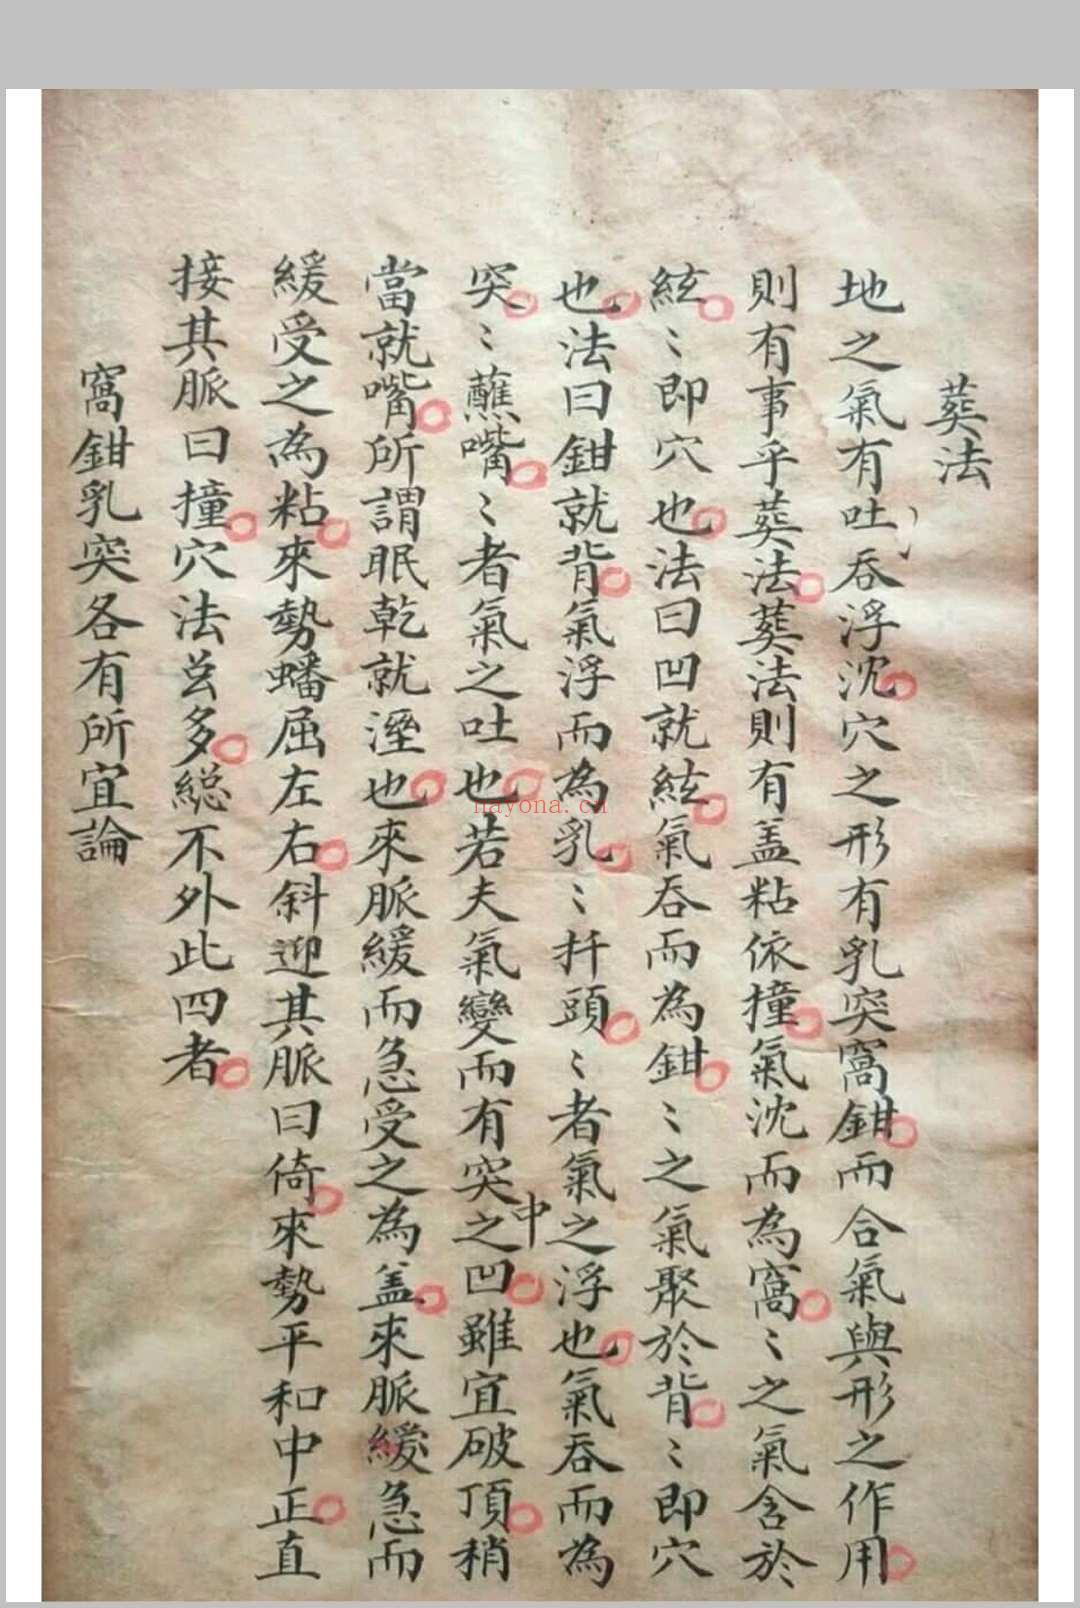 葬法
地之氣有吐吞浮沈穴之形有乳突窩鉗而合氣與形之作用
則有事乎葬法葬法則有盖粘依撞氣沈而為窩〻之氣含於
絃〻即穴也法曰凹就絃氣吞而為鉗〻之氣聚於背〻即穴
也法曰鉗就背氣浮而為乳〻扦頭〻者氣之浮也氣吞而為
突〻蘸嘴〻者氣之吐也若夫氣變而有突之中凹雖宜破頂稍
當就嘴所謂眠乾就溼也來脈緩而急受之為盖來脈緩急而
緩受之為粘來勢蟠屈左右斜迎其脈曰倚來勢平和中正直
接其脈曰撞穴法玄多總不外此四者
窩鉗乳突各有所宜論
nayona.cn